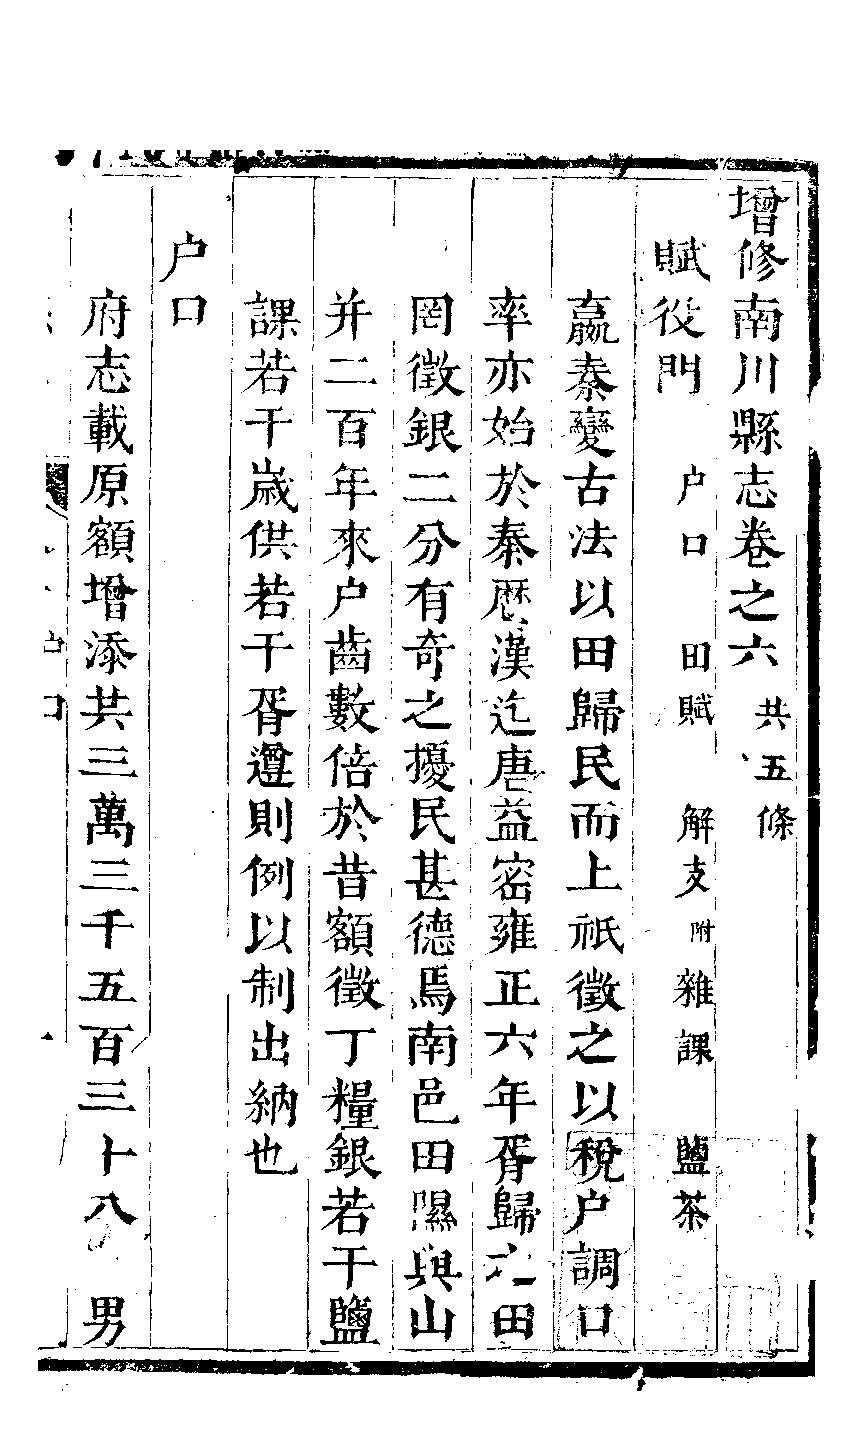 增修南川縣志卷之六 共五條
賦役門 户口 田賦 解支 附 雜課 鹽茶
嬴秦變古法以田歸民而上祇徵之以稅户調口
率亦始於秦厯漢迄唐益密雍正六年胥歸之田
罔徵銀二分有奇之擾民甚德焉南邑田隰與山
并二百年來户齒數倍於昔額徵丁糧銀若干鹽
課若干嵗供若干胥遵則例以制出納也
户口
府志載原額增添共三萬三千五百三十八 男
户口